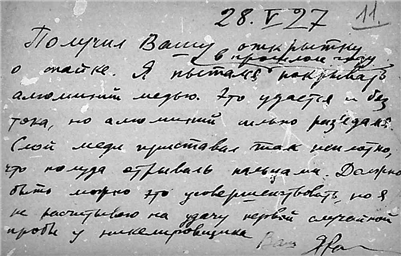 28.V 27 11.
Получил Вашу открытку
в прошлом году
о спайке. Я пытался покрывать
алюминий медью. Это удается и без
тока, но алюминий сильно раз'едался.
Слой меди приставал так неплотно,
что полуда отрывалась пальцами. Должно
быть можно это усовершенствовать, но я
не расчитываю на удачу первой случайной
пробы у никелировщика Ваш